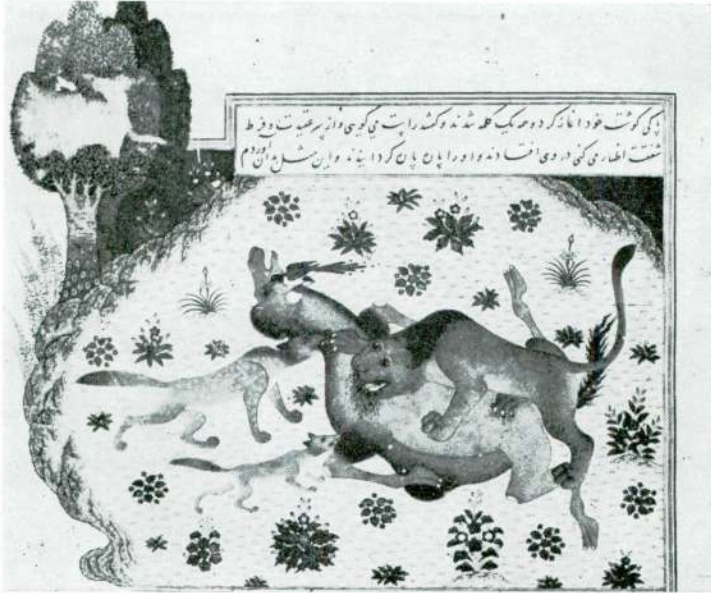 پکی گوشت خود اغاز کرد و همه یک کلمه شدند و گفتند راست می گویی و از سر عقیدت و فرط
شفقت اظهار می کنی در وی افتادند و او را پاره پاره کردانیدند و این مثل بدان آوردم